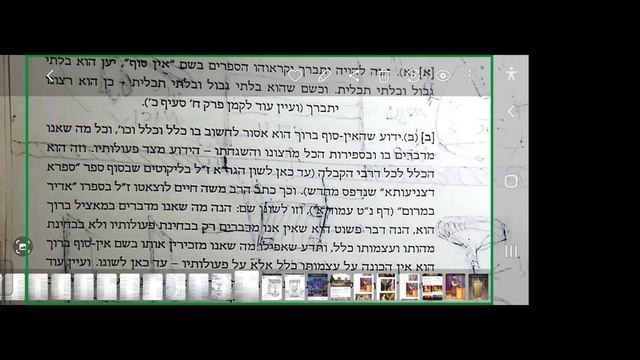 [א] (א). הנה להויה יתברך יקראוהו הספרים בשם "אין סוף", יען הוא בלתי
גבול ובלתי תכלית. וכשם שהוא בלתי גבול ובלתי תכלית - כן הוא רצונו
יתברך (ועיין עוד לקמן פרק ח' סעיף כ').
[ב] (ב). ידוע שהאין-סוף ברוך הוא אסור לחשוב בו כלל וכלל וכו', וכל מה שאנו
מדברים בו ובספירות הכל מרצונו והשגחתו – הידוע מצד פעולותיו. וזה הוא
הכלל לכל דרכי הקבלה (עד כאן לשון הגר"א ז"ל בליקוטים שבסוף ספר "ספרא
דצניעותא" שנדפס מחדש). וכך כתב הרב משה חיים לוצאטו ז"ל בספרו "אדיר
במרום" (דף נ"ט עמוד א'), וזו לשונו שם: הנה מה שאנו מדברים במאציל ברוך
הוא, הנה דבר פשוט הוא שאין אנו מדברים רק בבחינת פעולותיו ולא בבחינת
מהותו ועצמותו כלל, ותדע שאפילו מה שאנו מזכירין אותו בשם אין-סוף ברוך
הוא אין הכונה על עצמותו כלל אלא על פעולותיו – עד כאן לשונו. ועיין עוד